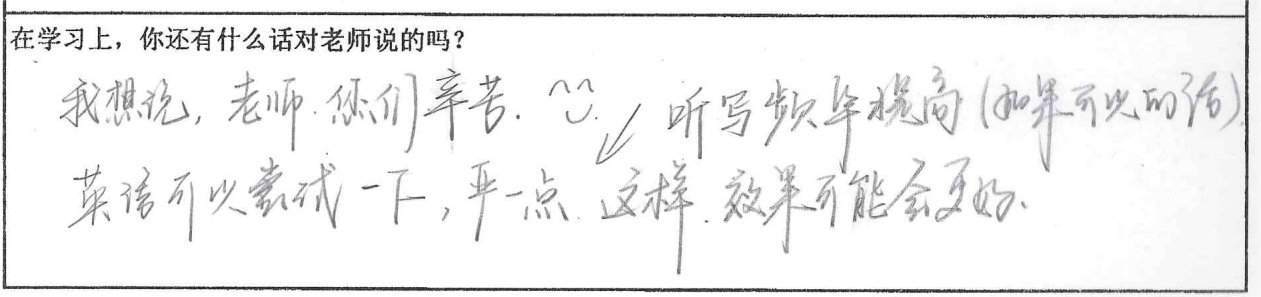 在学习上，你还有什么话对老师说的吗？
我想说，老师.你们辛苦. ^^ 听写频率提高(如果可以的话).
英语可以尝试一下，严一点.这样.效果可能会更好.